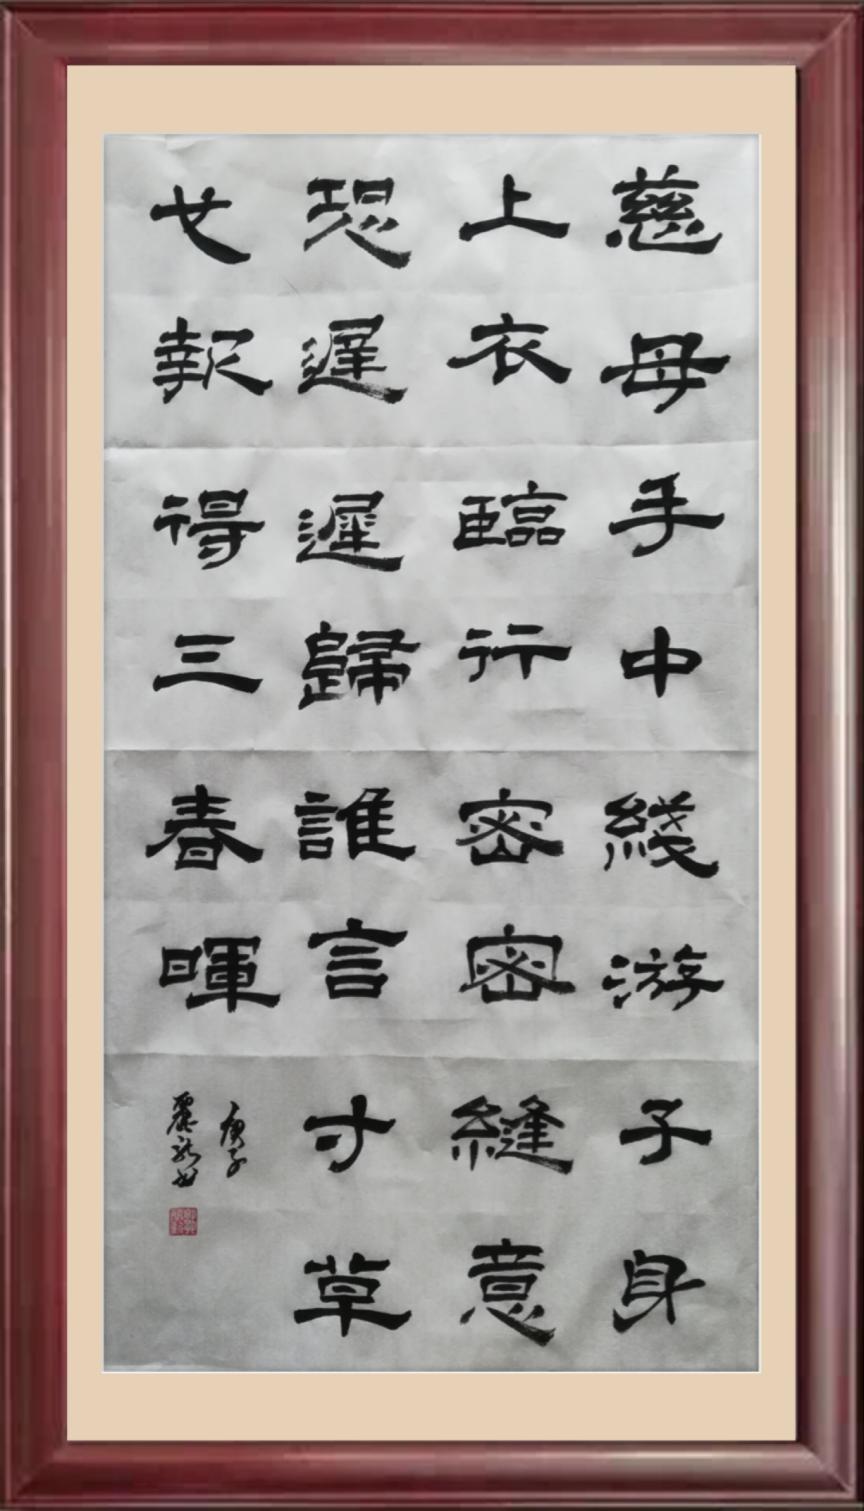 慈母手中綫游子身
上衣臨行密密縫意
恐遲遲歸誰言寸草
心報得三春暉
庚子
麗书